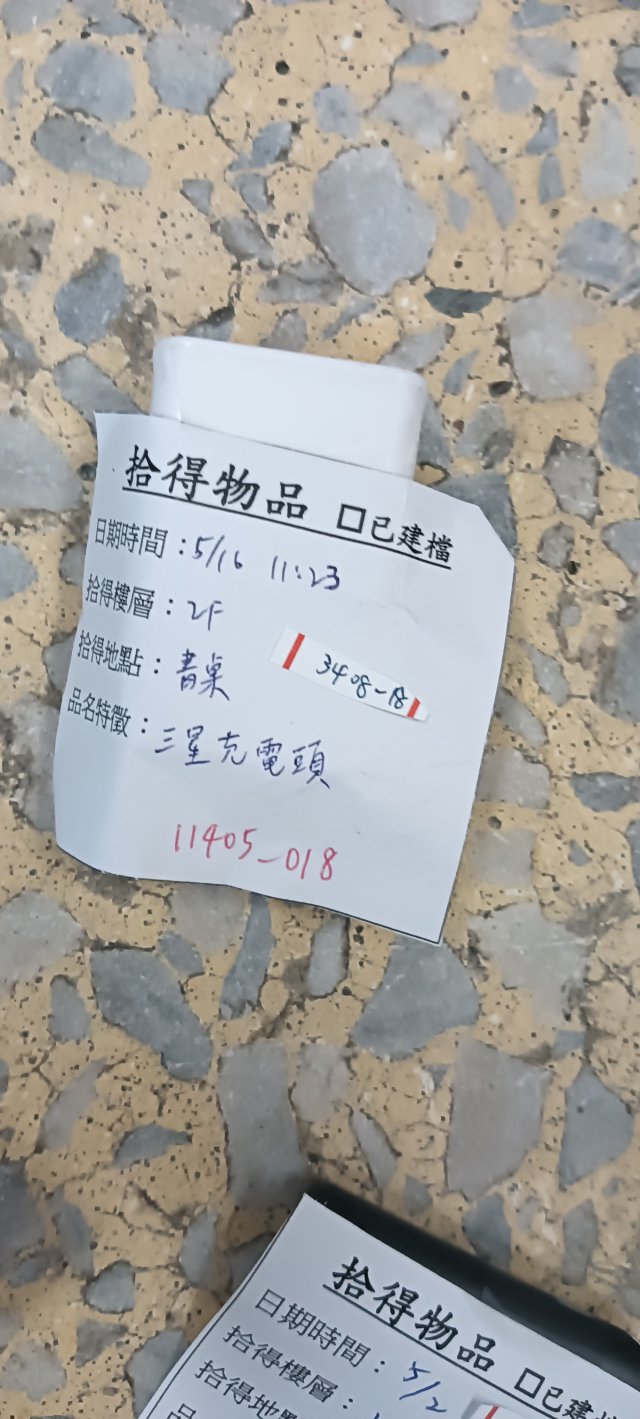 拾得物品 □已建檔
日期時間：5/16 11:23
拾得樓層：2F
拾得地點：書桌
3408-18
品名特徵：三星充電頭
11405-018
拾得物品 □已建
日期時間：5/2
拾得樓層：
拾得地點
品